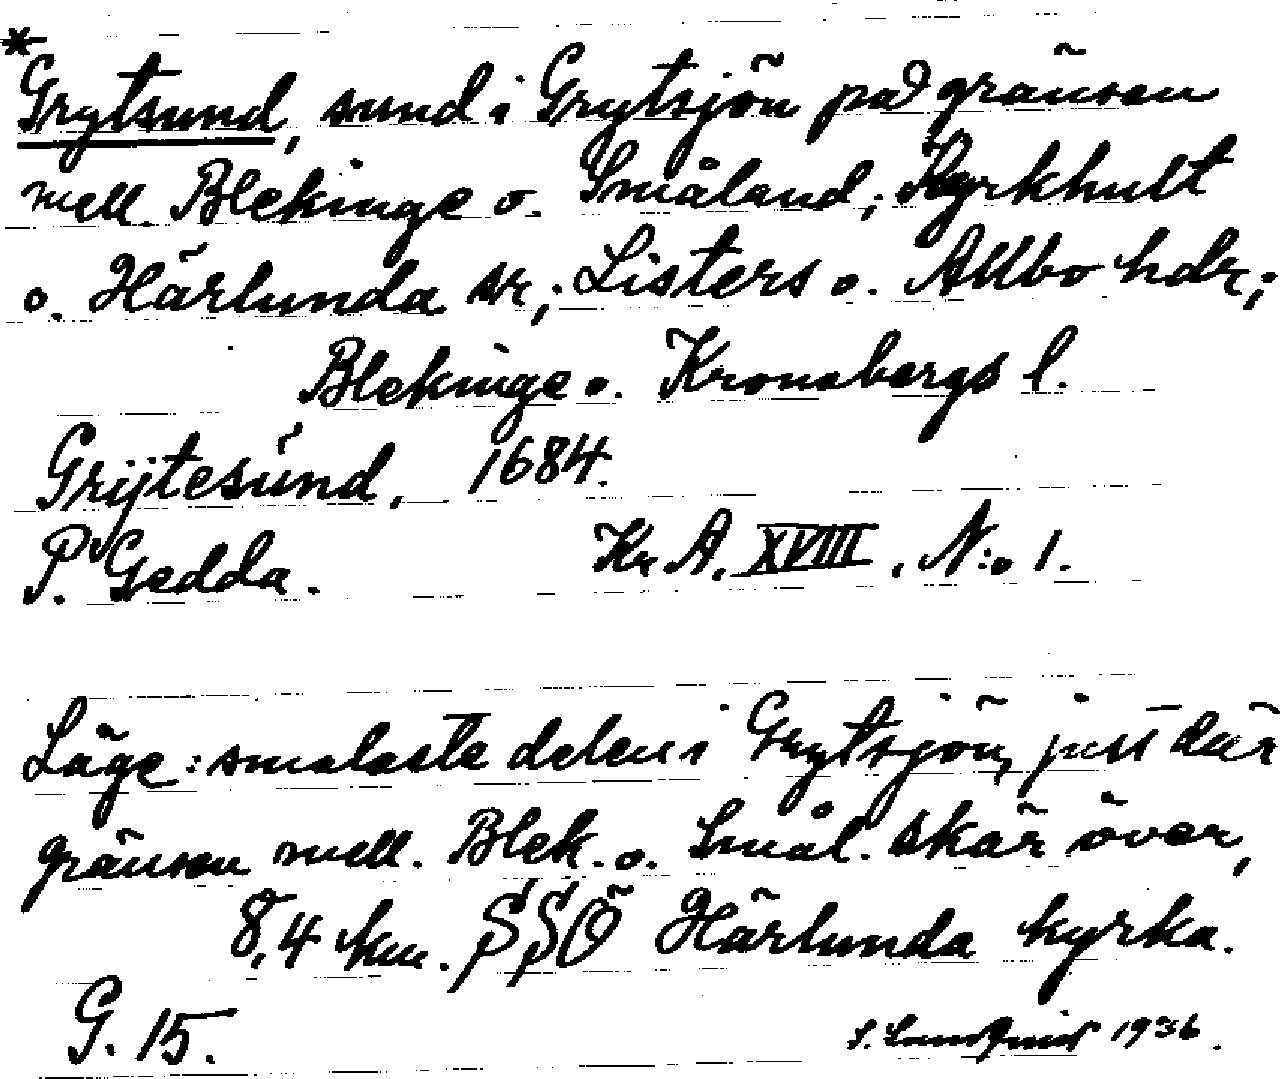 *Grytsund, sund i Grytsjön på gränsen
mell. Blekinge o. Småland; Kyrkhult
o. Härlunda snr; Listers o. Allbo hdr;
Blekinge o. Kronobergs l.
Grijtesund, 1684.
P. Gedda. Kr A. XVIII, N:o 1.
Läge: smalaste delen i Grytsjön, just där
gränsen mell. Blek. o. Smål. skär över,
8,4 km. SSÖ Härlunda kyrka.
G. 15.
S. Lundquist 1936.